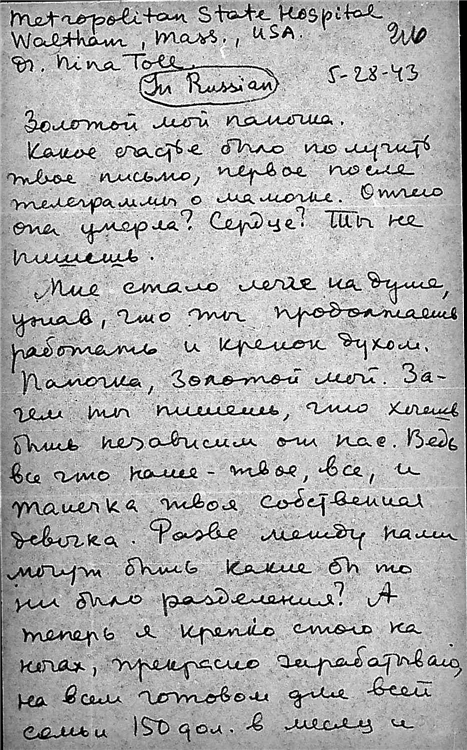 Metropolitan State Hospital
Waltham, Mass., USA.
Dr. Nina Toll.
5-28-43
In Russian
Золотой мой папочка.
Какое счастье было получить
твое письмо, первое после
телеграммы о мамочке. Отчего
она умерла? Сердце? Ты не
пишешь.
Мне стало легче на душе,
узнав, что ты продолжаешь
работать и крепок духом.
Папочка, Золотой мой. За-
чем ты пишешь, что хочешь
быть независим от нас. Ведь
все что наше - твое, все, и
Танечка твоя собственная
девочка. Разве между нами
могут быть какие бы то
ни было разделения? А
теперь я крепко стою на
ногах, прекрасно зарабатываю,
на всем готовом для всей
семьи 150 дол. в месяц и